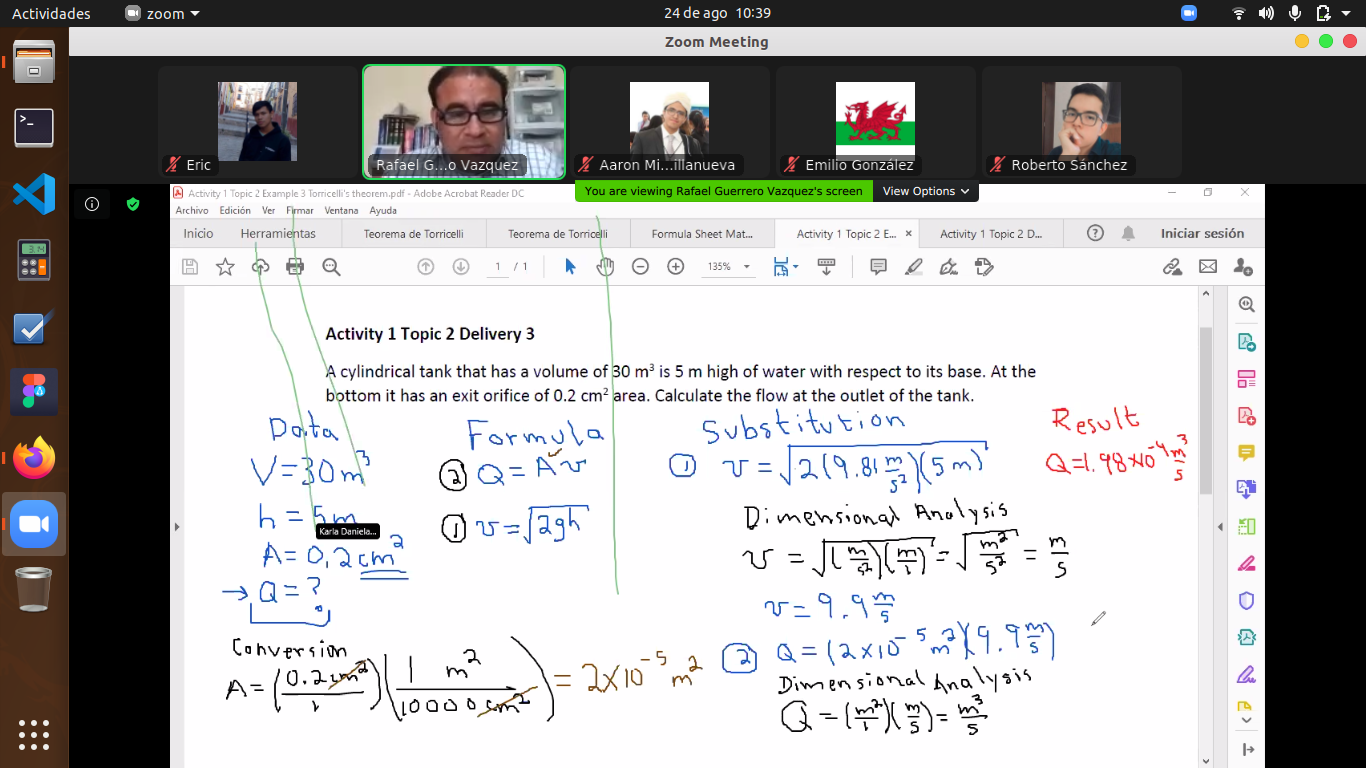 Actividades
zoom
24 de ago 10:39
Zoom Meeting
Eric
Rafael G...o Vazquez
Aaron Mi...illanueva
Emilio González
Roberto Sánchez
You are viewing Rafael Guerrero Vazquez's screen
View Options
Activity 1 Topic 2 Example 3 Torricelli's theorem.pdf - Adobe Acrobat Reader DC
Archivo Edición Ver Firmar Ventana Ayuda
Inicio
Herramientas
Teorema de Torricelli
Teorema de Torricelli
Formula Sheet Mat...
Activity 1 Topic 2 E... ×
Activity 1 Topic 2 D...
Iniciar sesión
1 / 1
135%
Activity 1 Topic 2 Delivery 3
A cylindrical tank that has a volume of 30 m³ is 5 m high of water with respect to its base. At the
bottom it has an exit orifice of 0.2 cm² area. Calculate the flow at the outlet of the tank.
Data
V=30m³
h=5m
Karla Daniela...
A=0.2cm²
→ Q=?
Conversion
A=(0.2cm²/1)(1 m²/10000cm²)=2×10⁻⁵m²
Formula
② Q=Av
① v=√2gh
Substitution
① v=√2(9.81 m/s²)(5m)
Dimensional Analysis
v=√(m/s²)(m/1)=√m²/s²=m/s
v=9.9 m/s
② Q=(2×10⁻⁵m²)(9.9 m/s)
Dimensional Analysis
Q=(m²/1)(m/s)=m³/s
Result
Q=1.98×10⁻⁴ m³/s